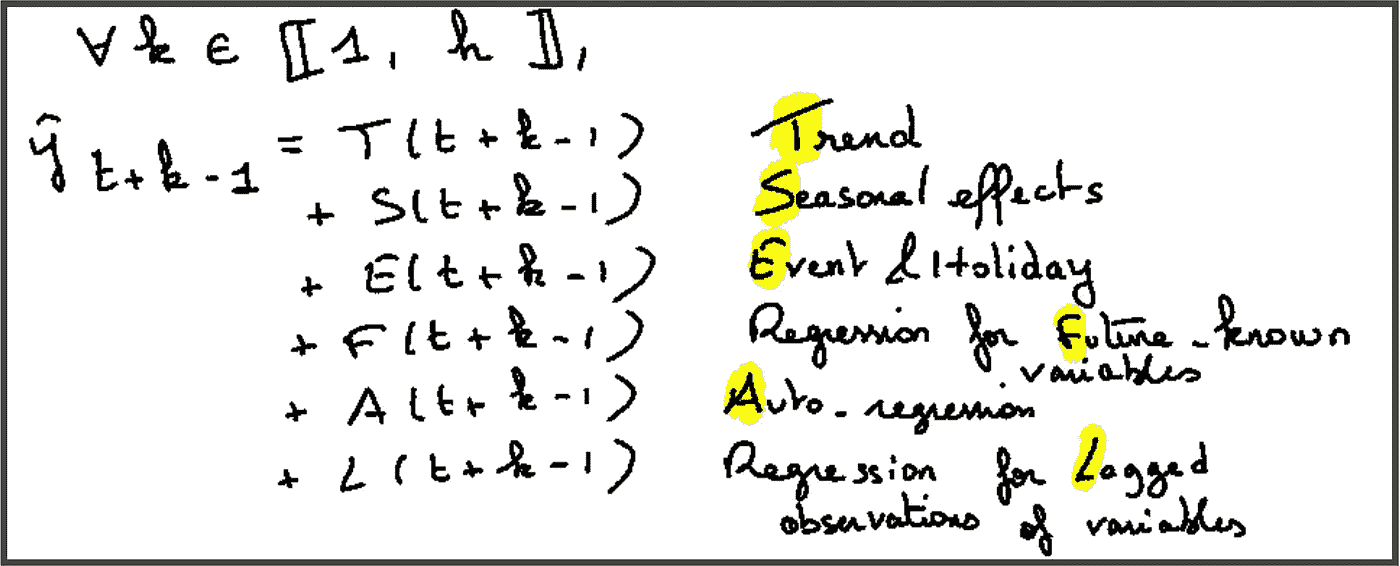 ∀ k ∈ ⟦1, h⟧,
ŷ t+k-1 = T(t+k-1) Trend
+ S(t+k-1) Seasonal effects
+ E(t+k-1) Event & Holiday
+ F(t+k-1) Regression for Future-known
variables
+ A(t+k-1) Auto-regression
+ L(t+k-1) Regression for Lagged
observations of variables